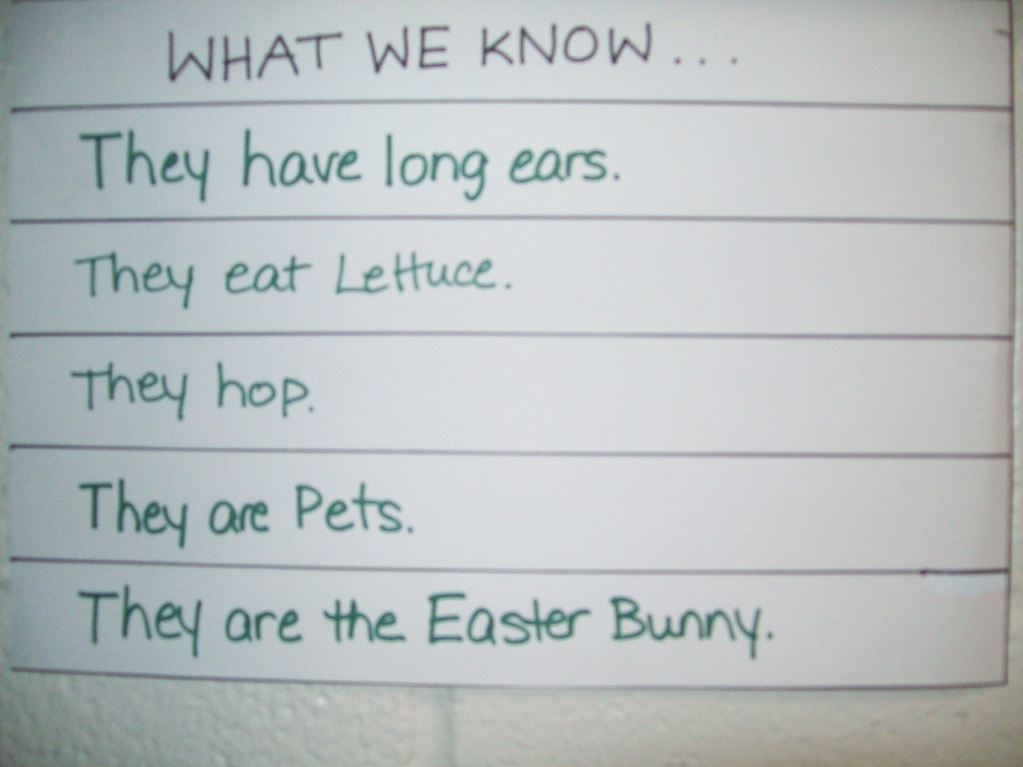 WHAT WE KNOW...
They have long ears.
They eat Lettuce.
They hop.
They are Pets.
They are the Easter Bunny.